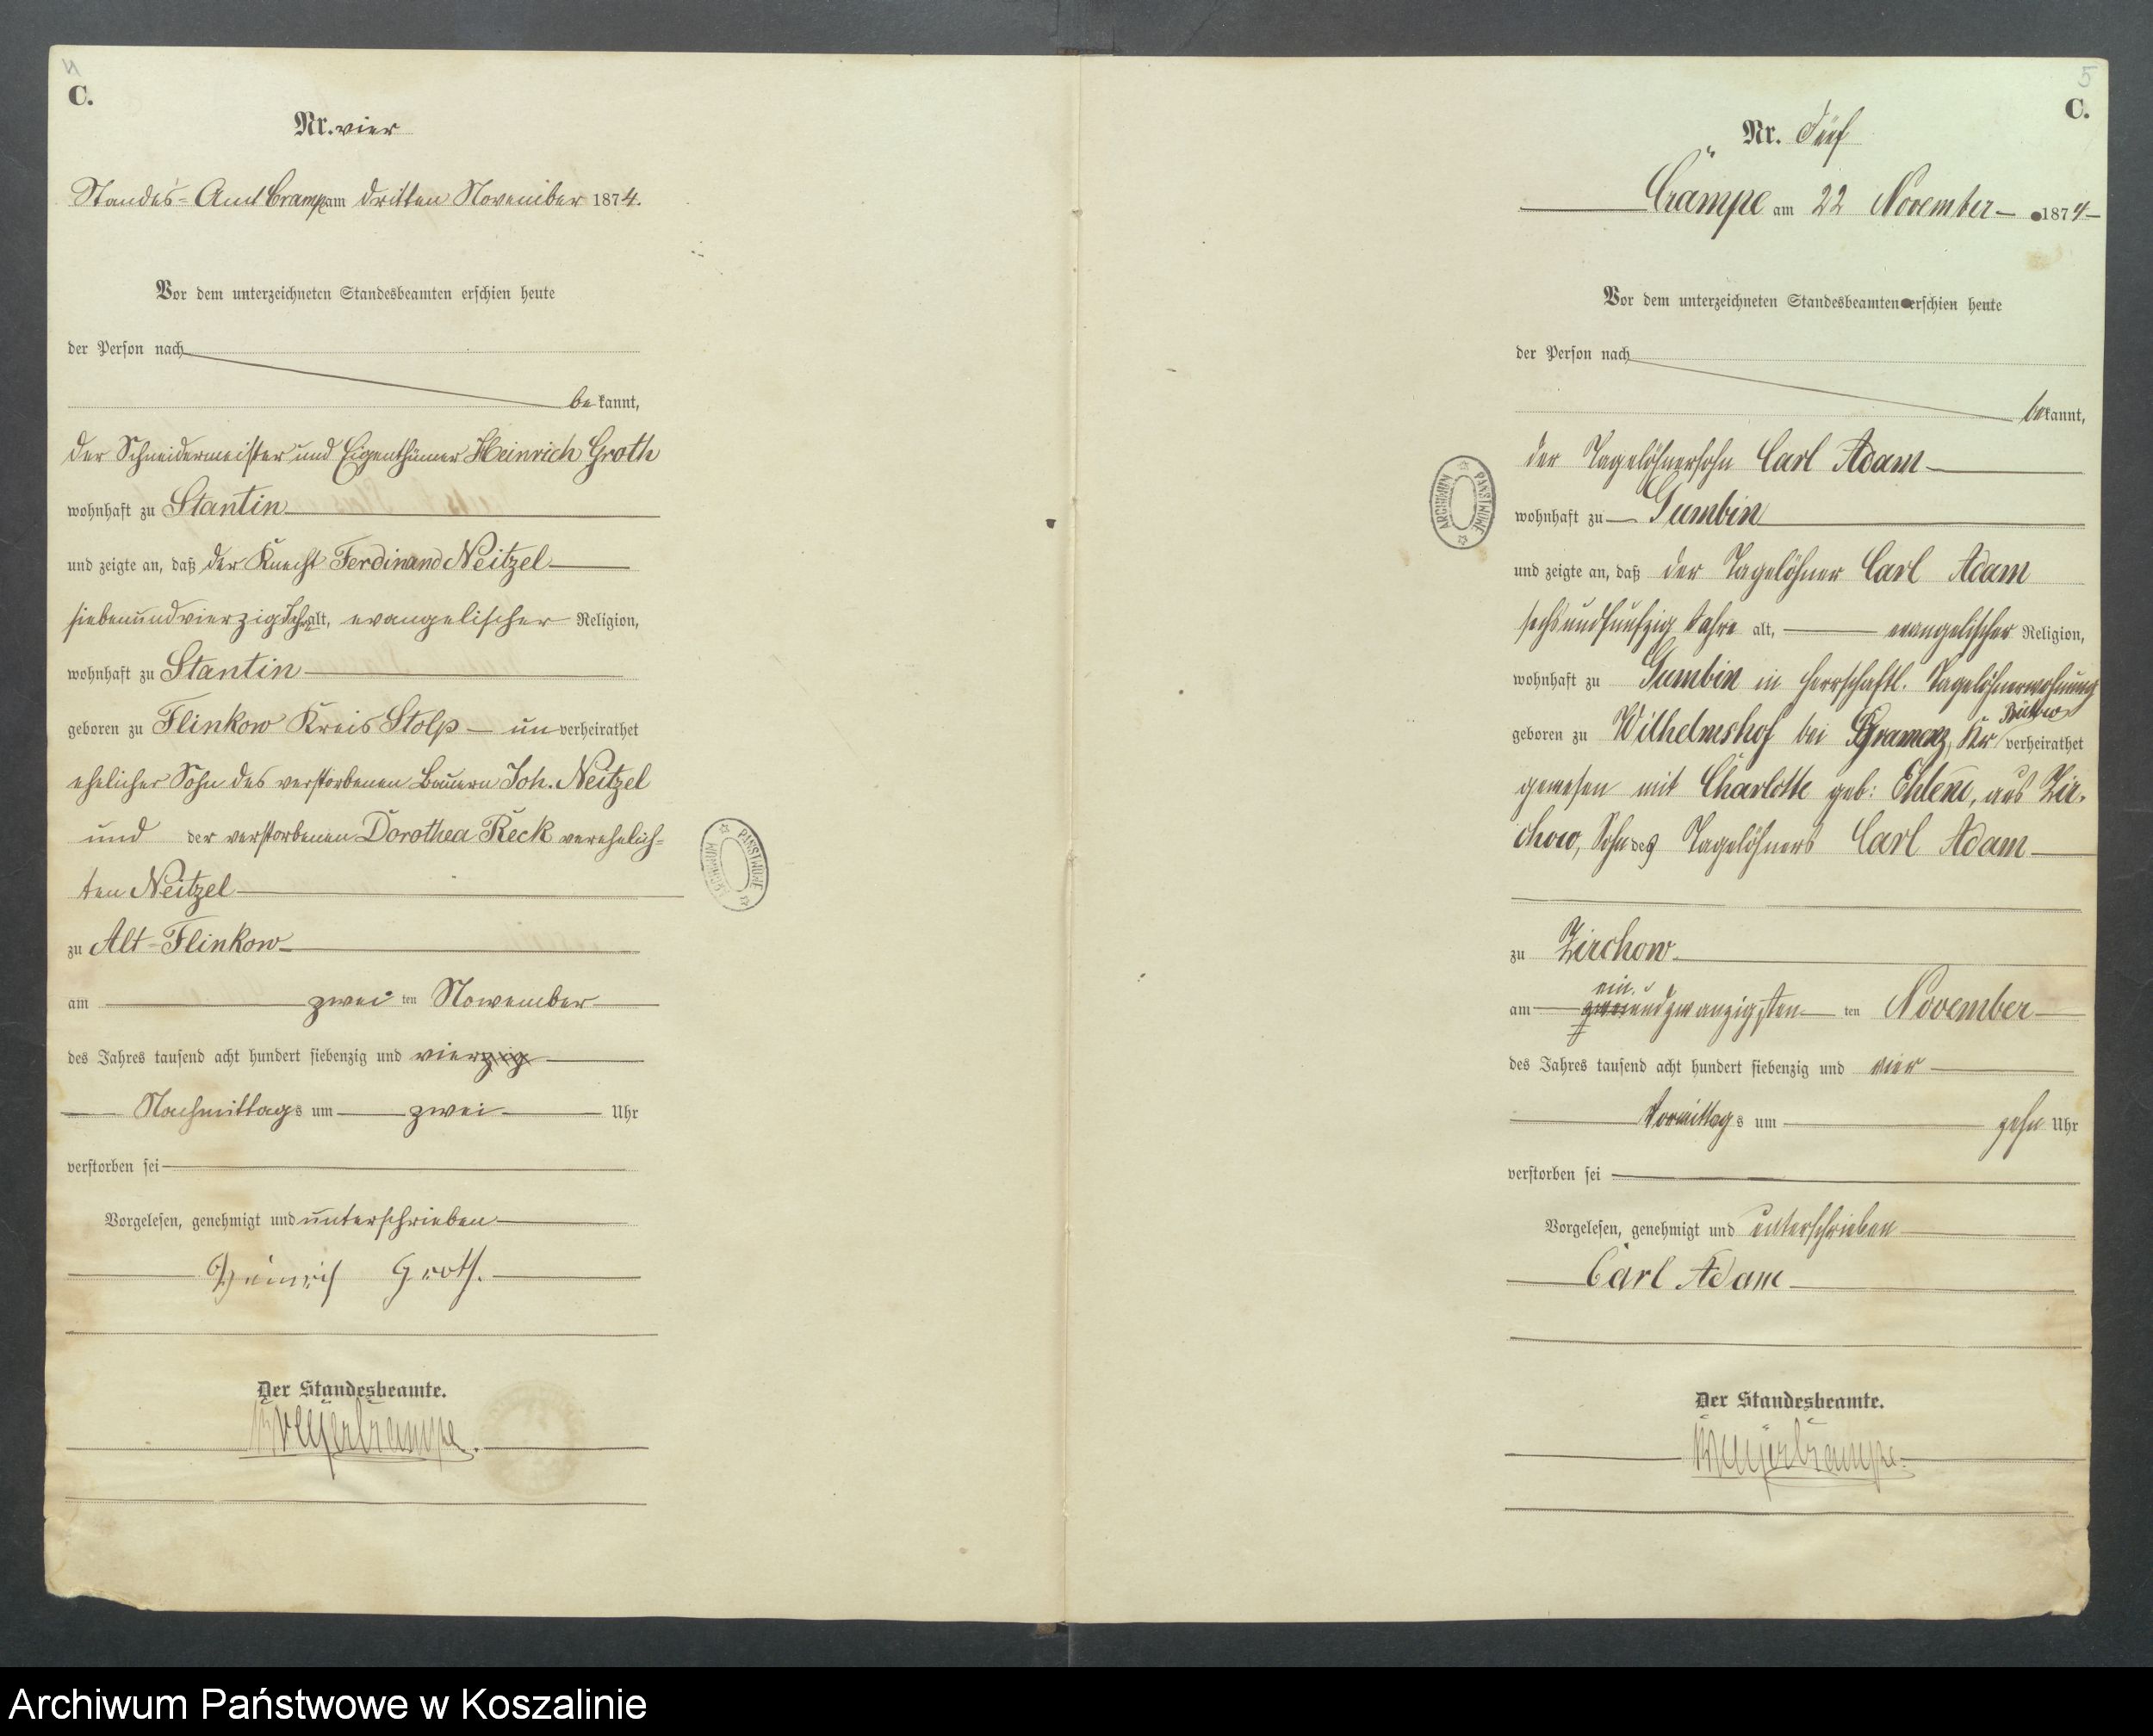 4
C.
Nr. vier
Standes-Amt Crampe am dritten November 1874.
Vor dem unterzeichneten Standesbeamten erschien heute
der Person nach
bekannt,
der Schneidermeister und Eigenthümer Heinrich Groth
wohnhaft zu Stantin
und zeigte an, daß der Knecht Ferdinand Neitzel
siebenundvierzig Jahre alt, evangelischer Religion,
wohnhaft zu Stantin
geboren zu Flinkow Kreis Stolp – unverheirathet
ehelicher Sohn des verstorbenen Bauern Joh. Neitzel
und der verstorbenen Dorothea Reck verehelich-
ten Neitzel
zu Alt-Flinkow
am zwei ten Nowember
des Jahres tausend acht hundert siebenzig und vierzig
Nachmittags um zwei Uhr
verstorben sei
Vorgelesen, genehmigt und unterschrieben
Heinrich Groth.
Der Standesbeamte.
ARCHIWUM PAŃSTWOWE
5
C.
Nr. Fünf
Crampe am 22 November 1874
Vor dem unterzeichneten Standesbeamten erschien heute
der Person nach
bekannt,
der Tagelöhnersohn Carl Adam
wohnhaft zu Gumbin
und zeigte an, daß der Tagelöhner Carl Adam
sechsundfunfzig Jahre alt, evangelischer Religion,
wohnhaft zu Gumbin in herrschaftl. Tagelöhnerwohnung
geboren zu Wilhelmshof bei Gramenz, Kr Bütow verheirathet
gewesen mit Charlotte geb: Ehlert, aus Zir-
chow, Sohn des Tagelöhners Carl Adam
zu Zirchow
ein u
am zweiundzwanzigsten ten November
des Jahres tausend acht hundert siebenzig und vier
Vormittags um zehn Uhr
verstorben sei
Vorgelesen, genehmigt und unterschrieben
Carl Adam
Der Standesbeamte.
ARCHIWUM PAŃSTWOWE
Archiwum Państwowe w Koszalinie